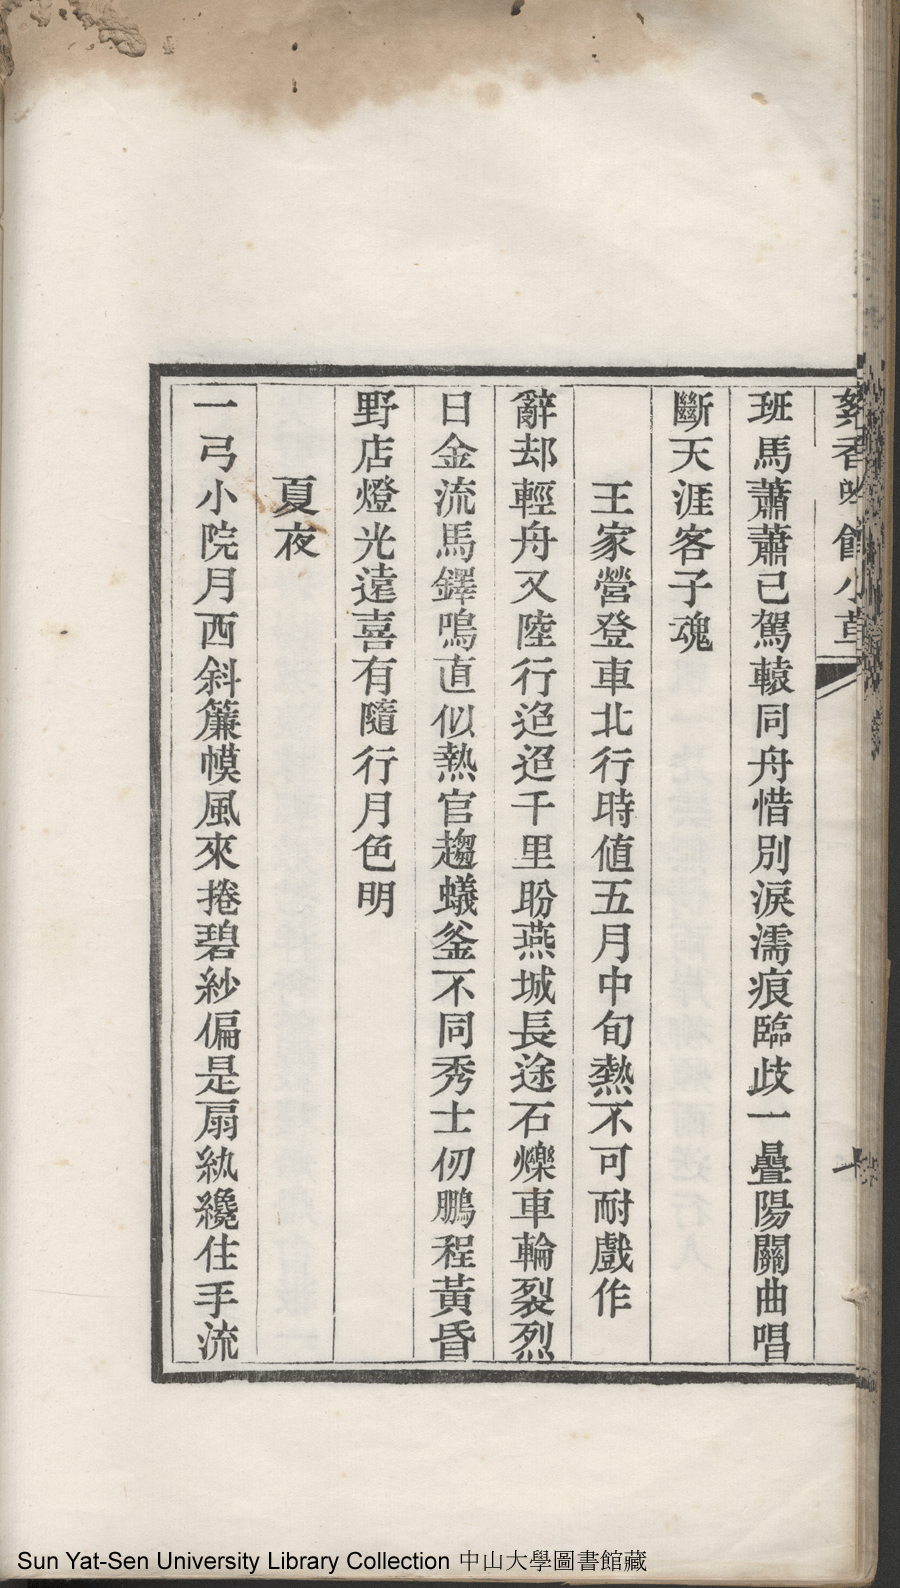 香吟館小草
十
班馬蕭蕭已駕轅同舟惜別淚濡痕臨歧一疊陽關曲唱
斷天涯客子魂
王家營登車北行時値五月中旬熱不可耐戲作
辭却輕舟又陸行迢迢千里盼燕城長途石爍車輪裂烈
日金流馬鐸鳴直似熱官趨蟻釜不同秀士仞鵬程黃昏
野店燈光遠喜有隨行月色明
夏夜
一弓小院月西斜簾幙風來捲碧紗偏是扇紈纔住手流
Sun Yat-Sen University Library Collection 中山大學圖書館藏